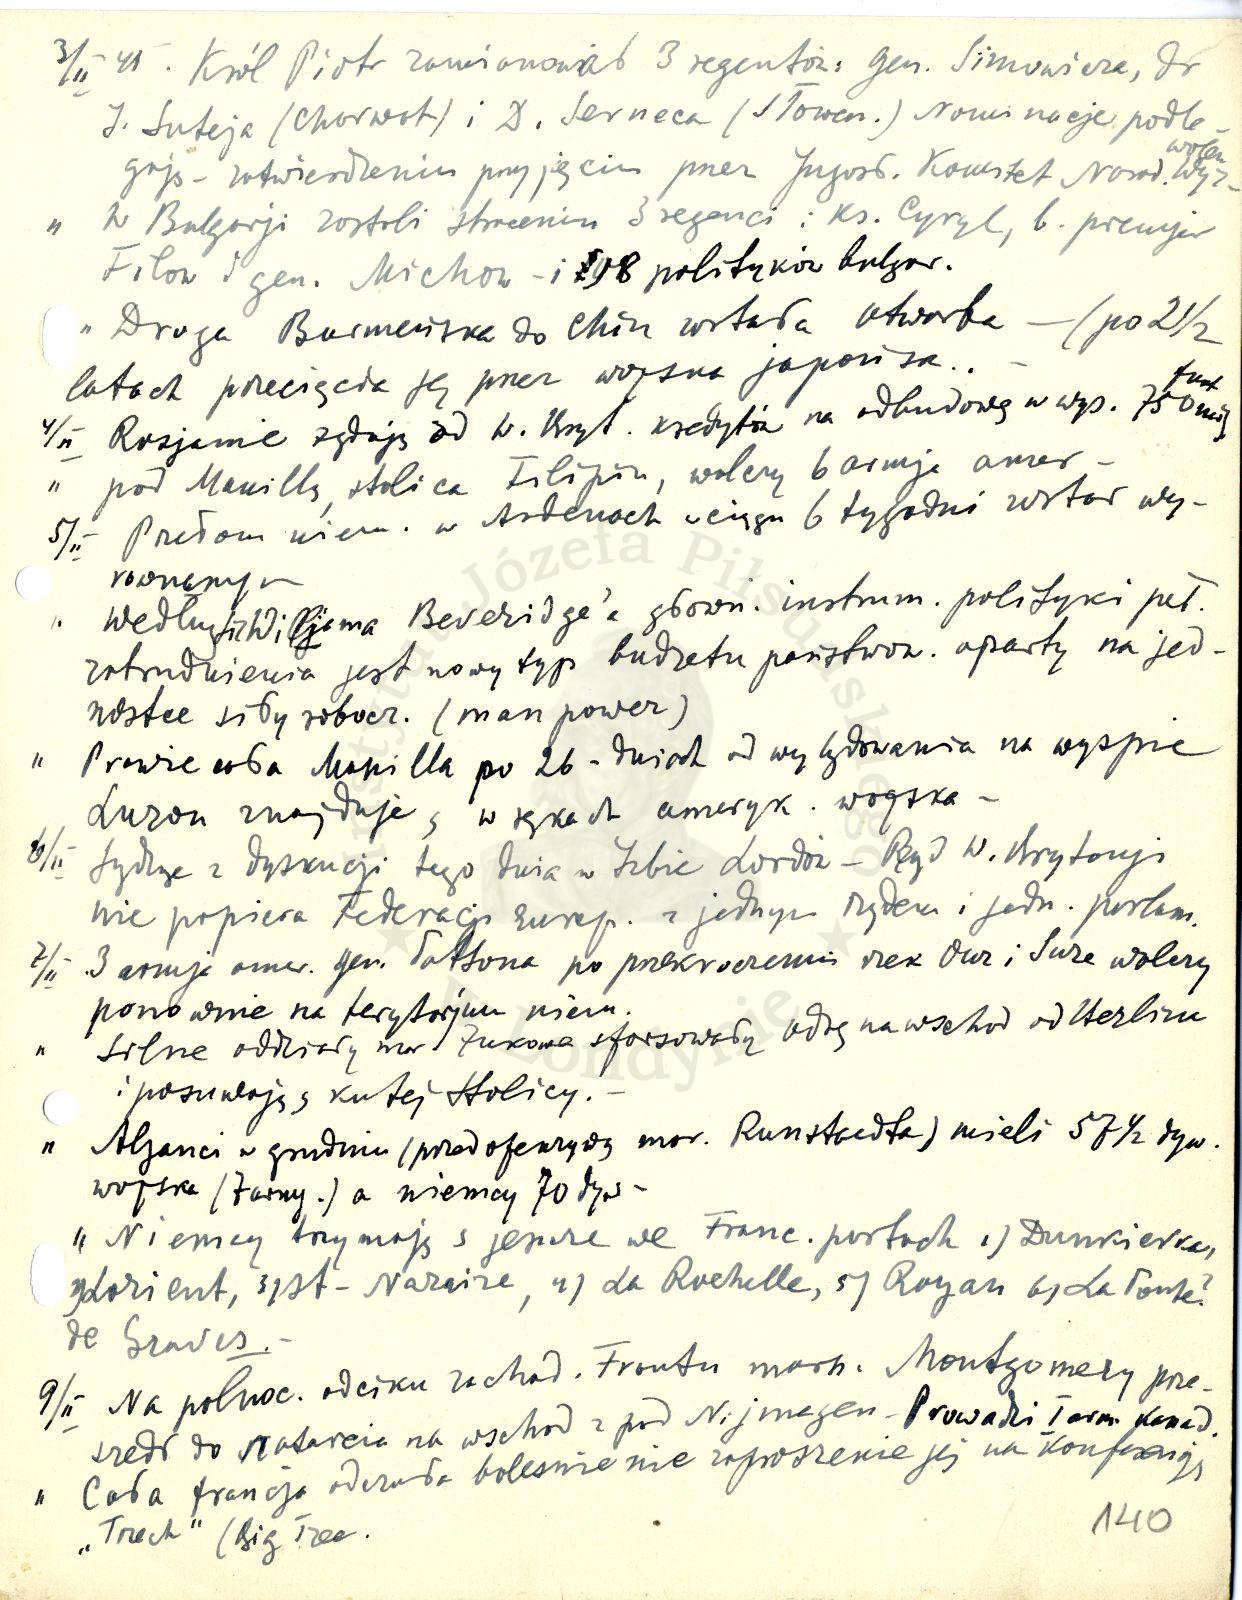 3/II 45. Król Piotr zamianował 3 regentów: gen. Simowicza, dr
J. Suteja (Chorwat) i D. Serneca (Słowen.) Nominacje podle-
gają zatwierdzeniu przyjęciu przez Jugosł. Komitet Narod. Wyz-
wolen
" W Bułgarji zostali straceni 3 regenci: ks. Cyryl, b. premjer
Filow i gen. Michow - i 98 polityków bułgar.
" Droga Burmeńska do Chin została otwarta — (po 2 1/2
latach przecięcia jej przez wojska japońsk.. -
4/II Rosjanie żądają od W. Bryt. kredytów na odbudowę w wys. 750 milj
funt
" pod Manillą, stolica Filipin, walczy 6 armja amer-
5/II Przełom niem. w Ardenach w ciągu 6 tygodni został wy-
równanym
" Według sir Wiljama Beveridge'a główn. instrum. polityki peł.
zatrudnienia jest nowy typ budżetu państwow. oparty na jed-
nostce siły robocz. (man power)
" Prawie cała Manilla po 26-dniach od wylądowania na wyspie
Luzon znajduje ś w rękach ameryk. wojska -
6/II Sądząc z dyskusji tego dnia w Izbie Lordów - Rząd W. Brytanji
nie popiera Federacji Europ. z jednym rządem i jedn. parlam.
7/II 3 armja amer. gen. Pattona po przekroczeniu rzek Our i Sure walczy
ponownie na terytorjum niem.
" silne oddziały mar Żukowa sforsowały Odrę na wschód od Berlina
i posuwają ś ku tej stolicy. -
" Aljanci w grudniu (przed ofenzywą mar. Runstaedta) mieli 57 1/2 dyw.
wojska (7 army.) a niemcy 70 dyw -
" Niemcy trzymają ś jeszcze we Franc. portach 1) Dunkierka,
2) Lorient, 3) St-Nazaire, 4) La Rochelle, 5) Royan 6) La Pointe?
de Graves. -
9/II Na północ. odcinku zachod. Frontu marsz. Montgomery prze-
szedł do natarcia na wschód z pod Nijmagen - Prowadzi 1 arm. kanad.
" Cała francja odczuła boleśnie nie zaproszenie jej na Konferencję
„Trzech" (Big Tree.
140
Instytut Józefa Piłsudskiego
w Londynie